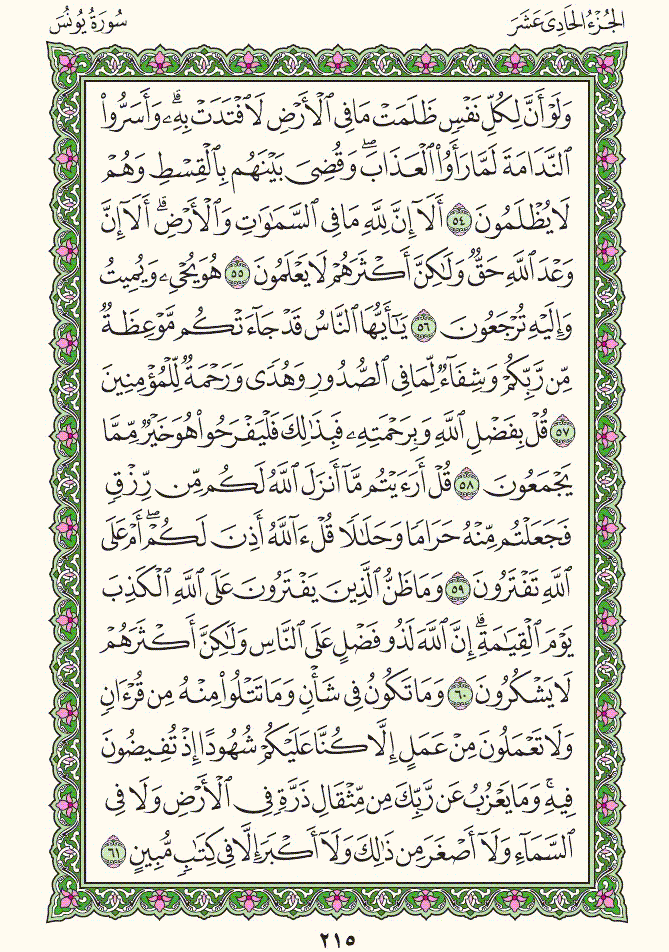 الجُزْءُ الحَادِىَ عَشَرَ
سُورَةُ يُونُسَ
وَلَوْ أَنَّ لِكُلِّ نَفْسٍ ظَلَمَتْ مَا فِي ٱلْأَرْضِ لَٱفْتَدَتْ بِهِۦۗ وَأَسَرُّوا۟
ٱلنَّدَامَةَ لَمَّا رَأَوُا۟ ٱلْعَذَابَۖ وَقُضِىَ بَيْنَهُم بِٱلْقِسْطِ وَهُمْ
لَا يُظْلَمُونَ ٥٤ أَلَآ إِنَّ لِلَّهِ مَا فِي ٱلسَّمَٰوَٰتِ وَٱلْأَرْضِۗ أَلَآ إِنَّ
وَعْدَ ٱللَّهِ حَقٌّ وَلَٰكِنَّ أَكْثَرَهُمْ لَا يَعْلَمُونَ ٥٥ هُوَ يُحْىِۦ وَيُمِيتُ
وَإِلَيْهِ تُرْجَعُونَ ٥٦ يَٰٓأَيُّهَا ٱلنَّاسُ قَدْ جَآءَتْكُم مَّوْعِظَةٌ
مِّن رَّبِّكُمْ وَشِفَآءٌ لِّمَا فِي ٱلصُّدُورِ وَهُدًى وَرَحْمَةٌ لِّلْمُؤْمِنِينَ
٥٧ قُلْ بِفَضْلِ ٱللَّهِ وَبِرَحْمَتِهِۦ فَبِذَٰلِكَ فَلْيَفْرَحُوا۟ هُوَ خَيْرٌ مِّمَّا
يَجْمَعُونَ ٥٨ قُلْ أَرَءَيْتُم مَّآ أَنزَلَ ٱللَّهُ لَكُم مِّن رِّزْقٍ
فَجَعَلْتُم مِّنْهُ حَرَامًا وَحَلَٰلًا قُلْ ءَآللَّهُ أَذِنَ لَكُمْۖ أَمْ عَلَى
ٱللَّهِ تَفْتَرُونَ ٥٩ وَمَا ظَنُّ ٱلَّذِينَ يَفْتَرُونَ عَلَى ٱللَّهِ ٱلْكَذِبَ
يَوْمَ ٱلْقِيَٰمَةِۗ إِنَّ ٱللَّهَ لَذُو فَضْلٍ عَلَى ٱلنَّاسِ وَلَٰكِنَّ أَكْثَرَهُمْ
لَا يَشْكُرُونَ ٦٠ وَمَا تَكُونُ فِي شَأْنٍ وَمَا تَتْلُوا۟ مِنْهُ مِن قُرْءَانٍ
وَلَا تَعْمَلُونَ مِنْ عَمَلٍ إِلَّا كُنَّا عَلَيْكُمْ شُهُودًا إِذْ تُفِيضُونَ
فِيهِۚ وَمَا يَعْزُبُ عَن رَّبِّكَ مِن مِّثْقَالِ ذَرَّةٍ فِي ٱلْأَرْضِ وَلَا فِي
ٱلسَّمَآءِ وَلَآ أَصْغَرَ مِن ذَٰلِكَ وَلَآ أَكْبَرَ إِلَّا فِي كِتَٰبٍ مُّبِينٍ ٦١
٢١٥